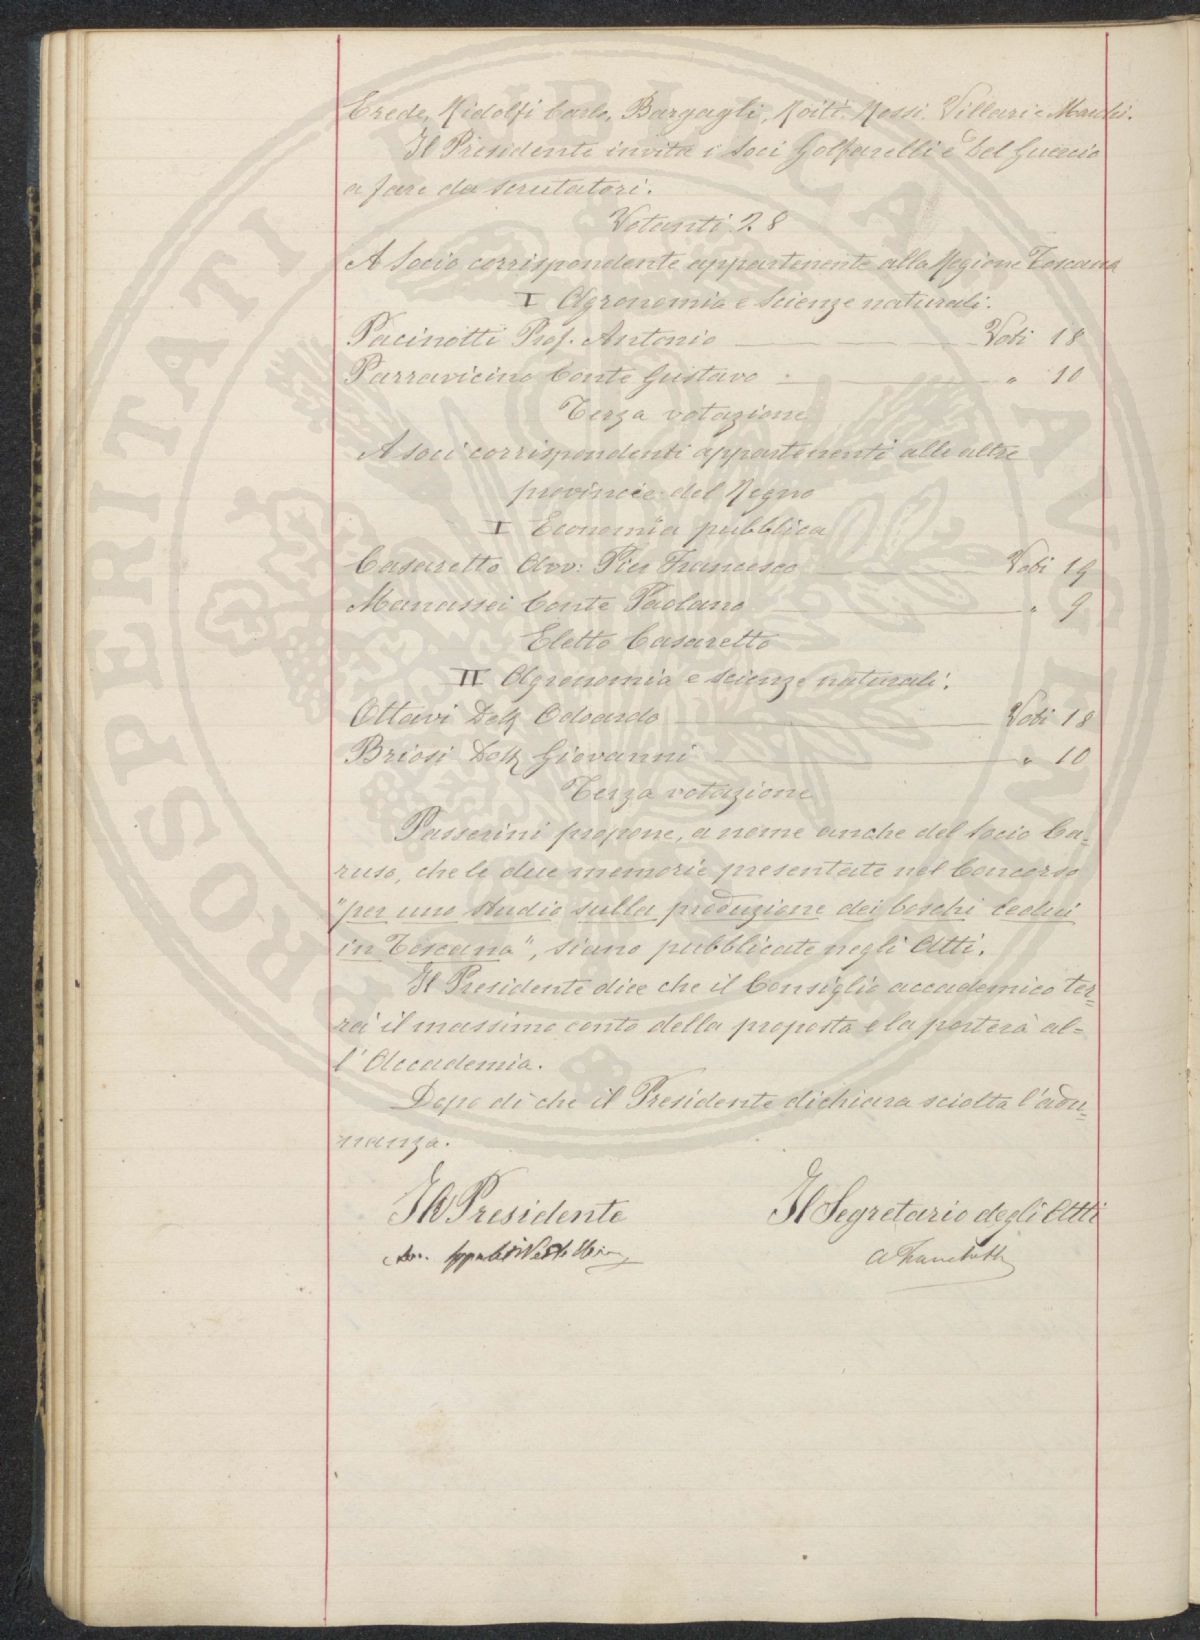 Erede, Ridolfi Carlo, Bargagli, Roiti, Rossi, Villari e
Il Presidente invita i Soci Golfarelli e Del Guercio
a fare da scrutatori.
Votanti 28
A Socio corrispondente appartenente alla Regione Toscana
I Agronomia e Scienze naturali.
Pacinotti Prof. Antonio Voti 18
Parravicino Conte Gustavo " 10
Terza votazione
A soci corrispondenti appartenenti alle altre
provincie del Regno
I Economia pubblica
Casaretto Avv: Pier Francesco Voti 19
Manassei Conte Paolano " 9
Eletto Casaretto
II Agronomia e scienze naturali.
Ottavi Dott Edoardo Voti 18
Briosi Dott Giovanni " 10
Terza votazione
Passerini propone, a nome anche del Socio Ca=
ruso, che le due memorie presentate nel Concorso
"per uno studio sulla produzione dei boschi cedui
in Toscana", siano pubblicate negli Atti.
Il Presidente dice che il Consiglio accademico ter=
rà il massimo conto della proposta e la porterà al=
l'Accademia.
Dopo di che il Presidente dichiara sciolta l'adu=
nanza.
Il Presidente Il Segretario degli Atti
A Franchetti
PROSPERITATI PUBLICAE AUGENDAE